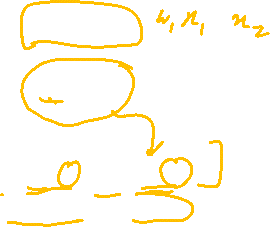 w₁ x₁ x₂